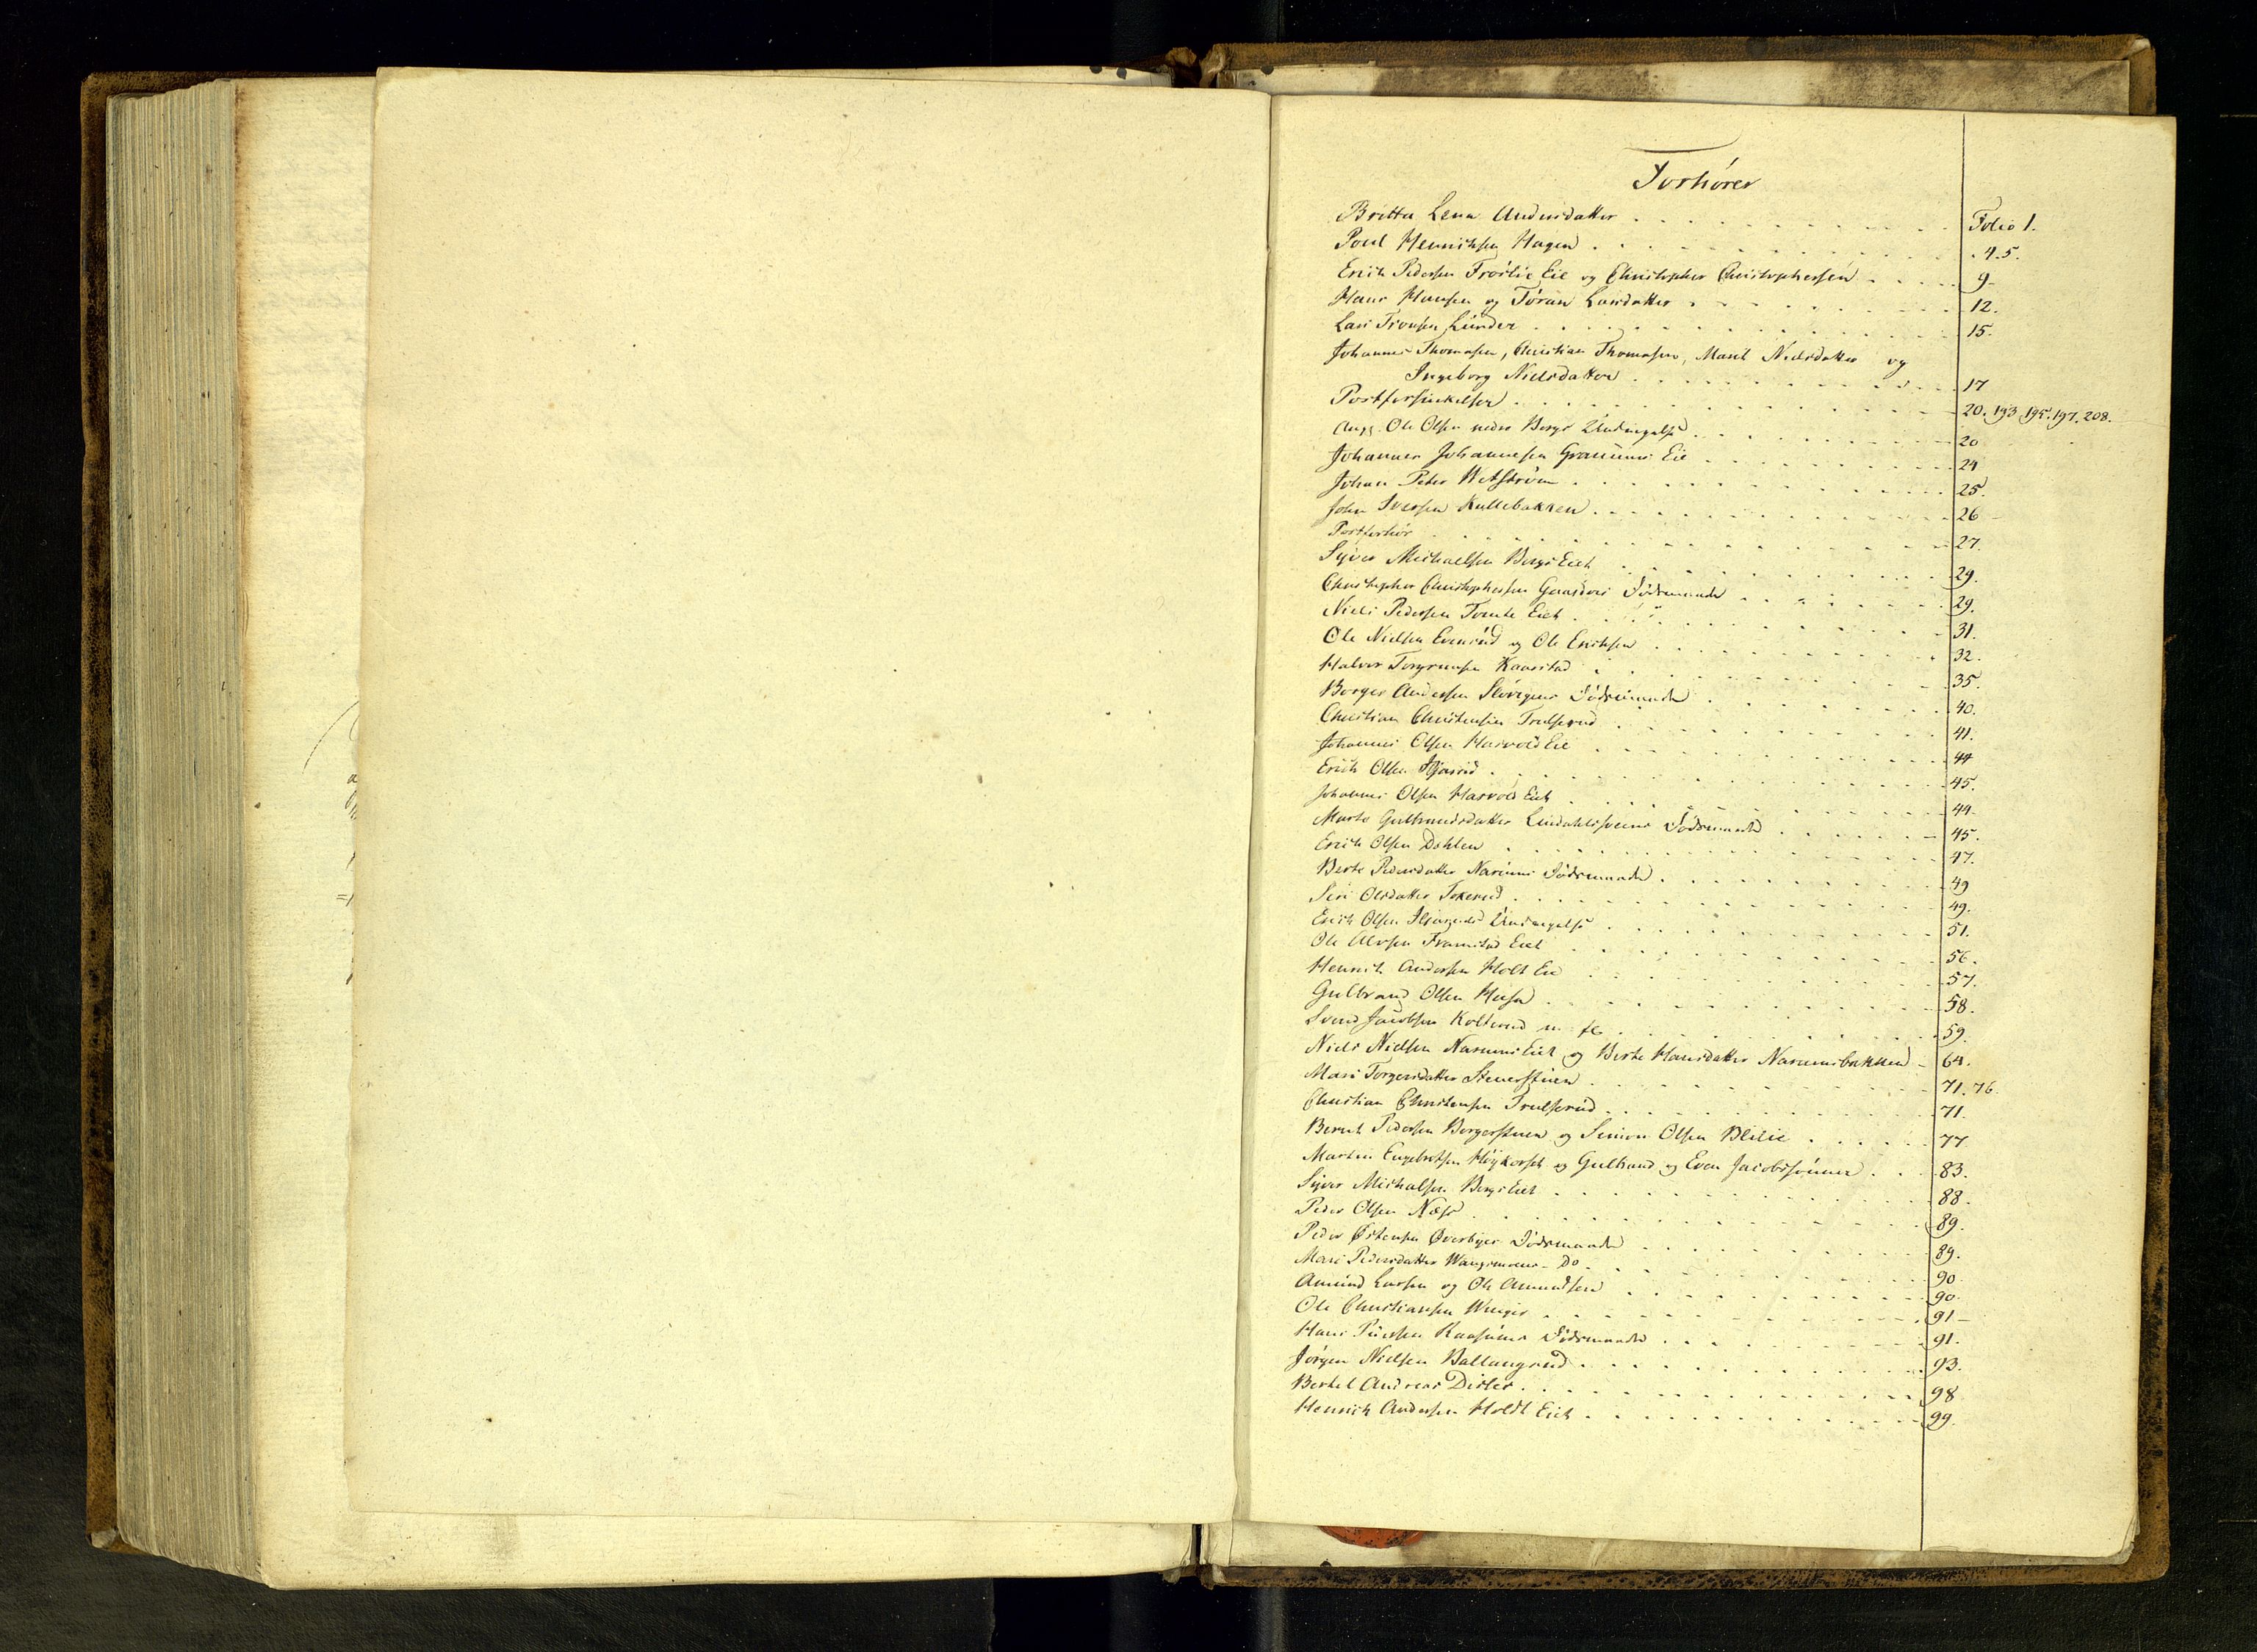 Forhører
Britta Lena Andersdatter Folio 1.
Poul Henrichsen Hagen 4.5.
Erich Pedersen Frøslie Eie og Christopher Christophersen 9
Hans Hansen og Töran Larsdatter 12.
Lars Tronsen Lunder 15.
Johannes Thomasen, Christian Thomasen, Marit Nielsdatter og
Ingeborg Nielsdatter 17
Postforsinkelser 20. 193. 195. 197. 208.
Ang. Ole Olsen nedre Bergs Undvigelse 20
Johannes Johannesen Granums Eie 24
Johan Peter Wetström 25.
John Iversen Kullebakken 26
Postforhör 27.
Syver Michaelsen Bergs Eiet 29.
Christopher Christophersen Dödsmaade 29.
Niels Pedersen Tomte Eiet 31.
Ole Nielsen Evensud og Ole Erichsen 32.
Halvor Torgrimsen Kaarstad 35.
Borger Andersen Dödsmaade 40.
Christian Christensen Trulserud 41.
Johannes Olsen Harvold Eie 44
Erich Olsen 45.
Johannes Olsen Harvold Eiet 44
Marte Gulbrandsdatter Dödsmaade 45.
Erich Olsen Dahlen 47.
Berte Pedersdatter Narums Dödsmaade 49
Siri Olsdatter 49.
Erich Olsen Undvigelse 51.
Ole Alvsen Framstad Eiet 56.
Henrich Andersen Holt Eie 57.
Gulbrand Olsen 58.
Svend Jacobsen Kolterud m. fl. 59.
Niels Nielsen Narums Eiet og Berte Hansdatter Narumsbakken 64.
Mari Torgersdatter 71. 76.
Christian Christensen Trulserud 71.
Bernt Pedersen Borgerstuen og Simon Olsen Blilie 77
Martin Engebretsen og Gulbrand og Even Jacobssönner 83.
Syver Michalsen Bergs Eiet 88.
Peder Olsen Næss 89.
Peder Østensen Øverbyes Dödsmaade 89.
Mari Pedersdatter Do 90
Amund Larsen og Ole Amundsen 90
Ole Christiansen 91
Hans Dödsmaade 91.
Jörgen Nielsen Ballangrud 93.
Bertel Andreas Disler 98
Henrich Andersen Holdt Eiet 99.